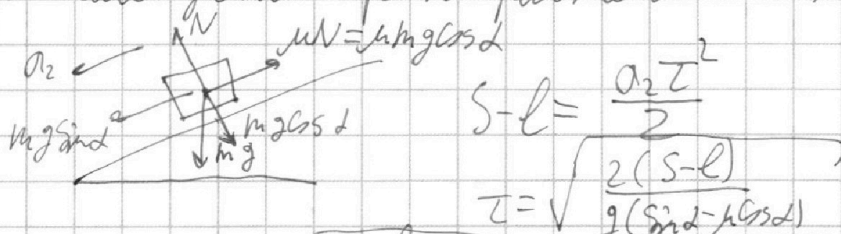 N
μN = μmgcosα
a₂
mgsinα
mgcosα
mg
S-l = a₂τ²/2
τ = √(2(S-l)/g(sinα-μcosα))